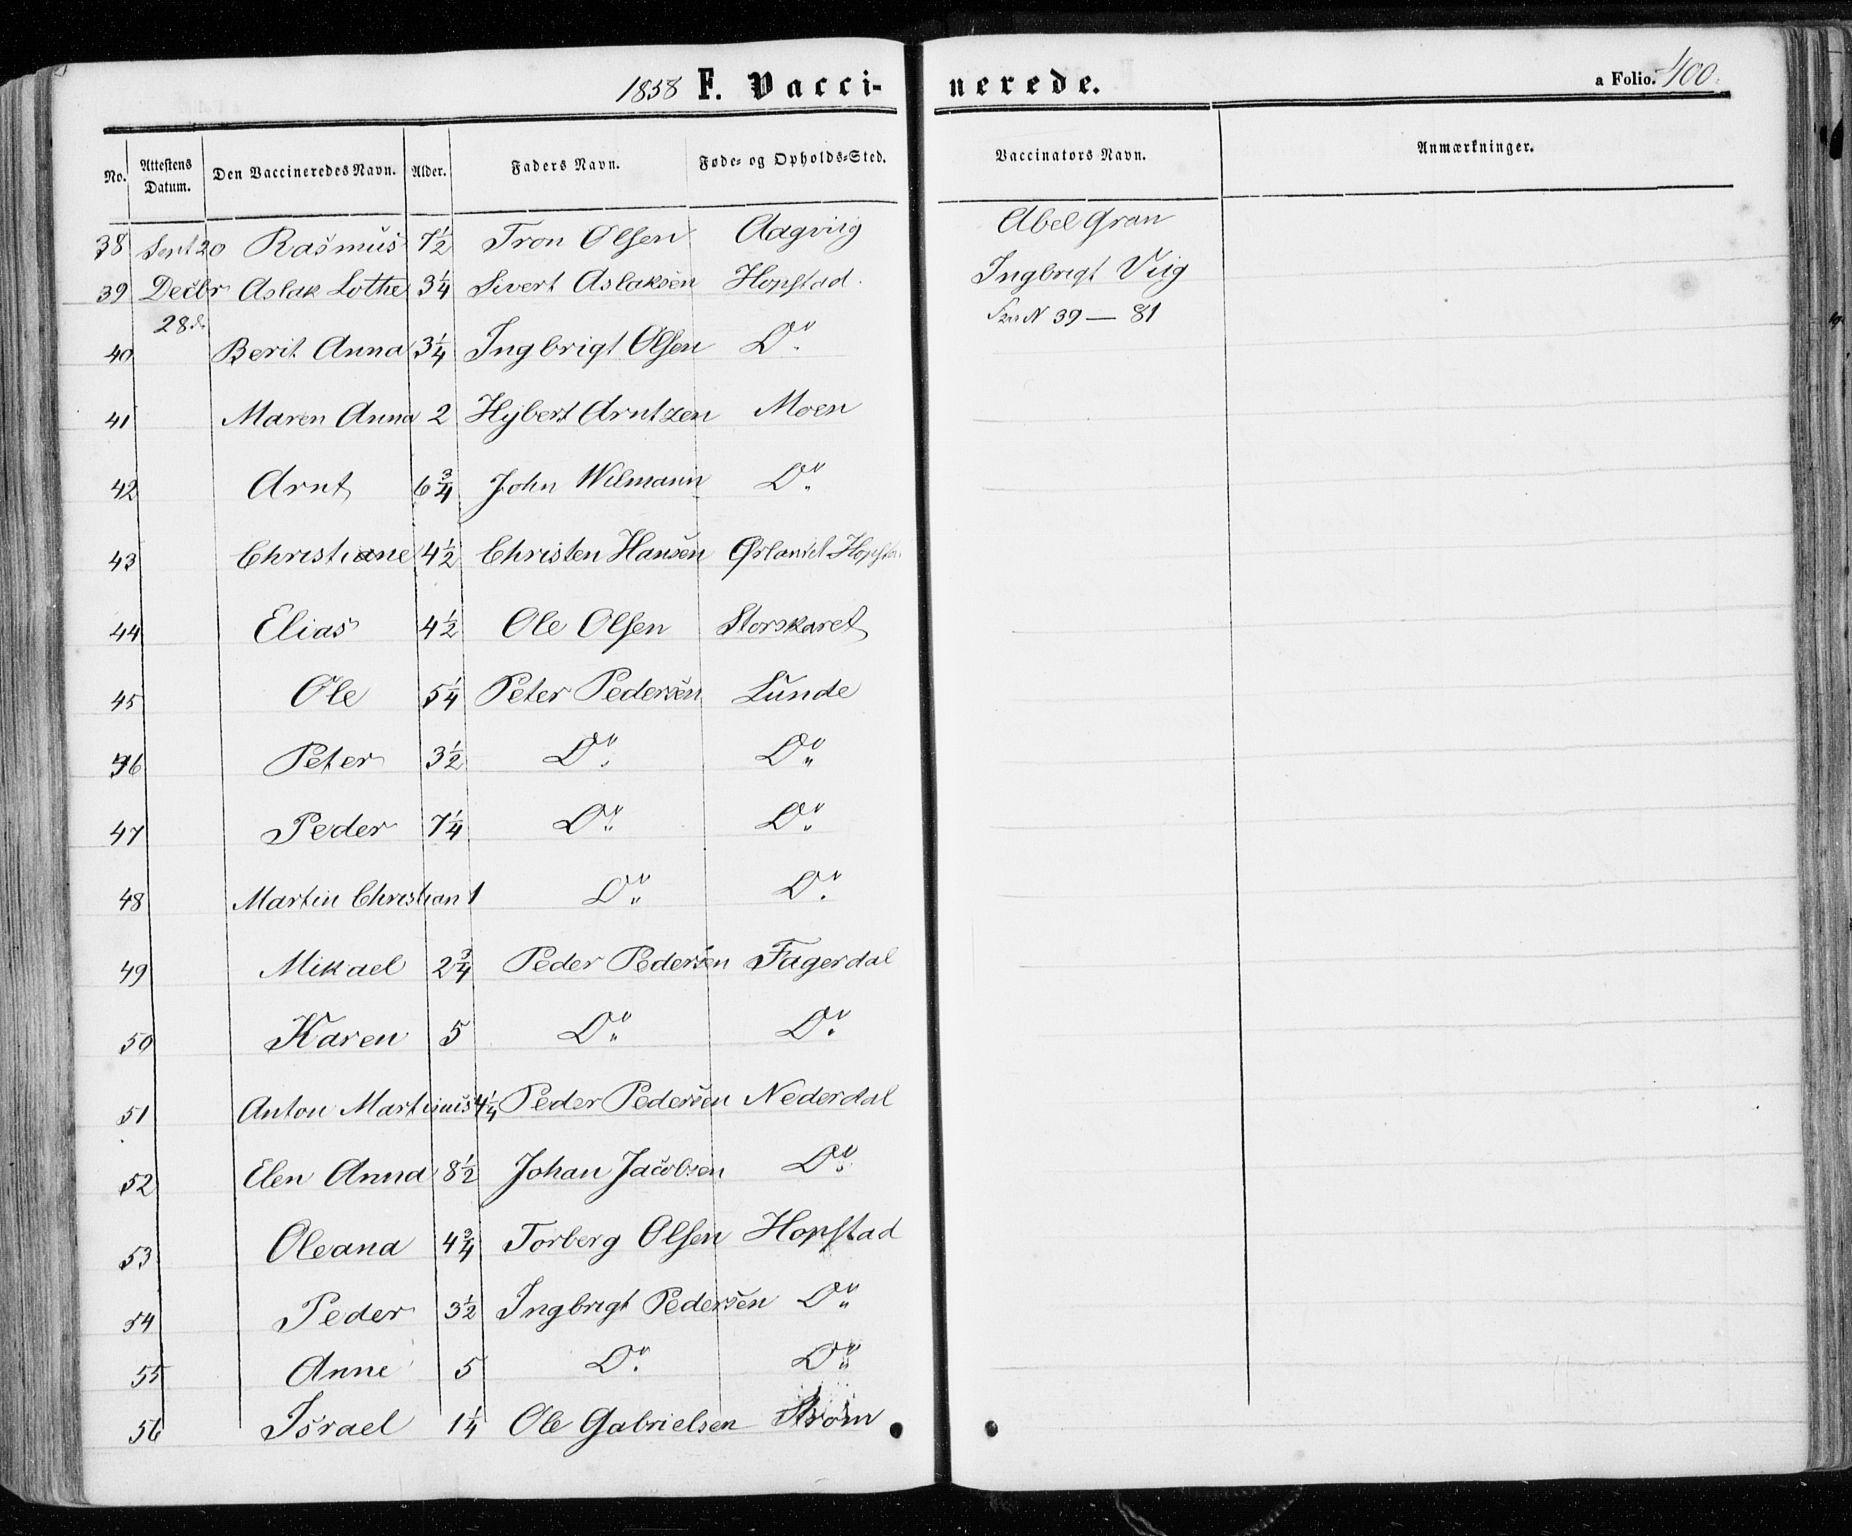 1858 F. Vacci-nerede. a Folio. 400.
No. Attestens Datum. Den Vaccineredes Navn. Alder. Faders Navn. Føde- og Opholds-Sted. Vaccinators Navn. Anmærkninger.
38 Sept 20 Rasmus 7½ Tron Olsen Aagviig Abel Gran
39 Decbr Aslak Lothe 3¼ Sivert Aslaksen Hopstad. Ingbrigt Viig
28de N 39 — 81
40 Berit Anna 3¼ Ingbrigt Olsen Do
41 Maren Anna 2 Hybert Arntzen Moen
42 Arnt 6¾ John Wilmann Do
43 Christiane 4½ Christen Hansen Ørlandet
44 Elias 4½ Ole Olsen Storskaret
45 Ole 5¼ Peter Pedersen Lunde
46 Peter 3½ Do Do
47 Peder 7¼ Do Do
48 Martin Christian 1 Do Do
49 Mikael 2¾ Peder Pedersen Fagerdal
50 Karen 5 Do Do
51 Anton Martinus 4¼ Peder Pedersen Nederdal
52 Elen Anna 8½ Johan Jacobsen Do
53 Oleana 4¾ Torberg Olsen Hopstad
54 Peder 3½ Ingbrigt Pedersen Do
55 Anne 5 Do Do
56 Israel 1¼ Ole Gabrielsen Strøm